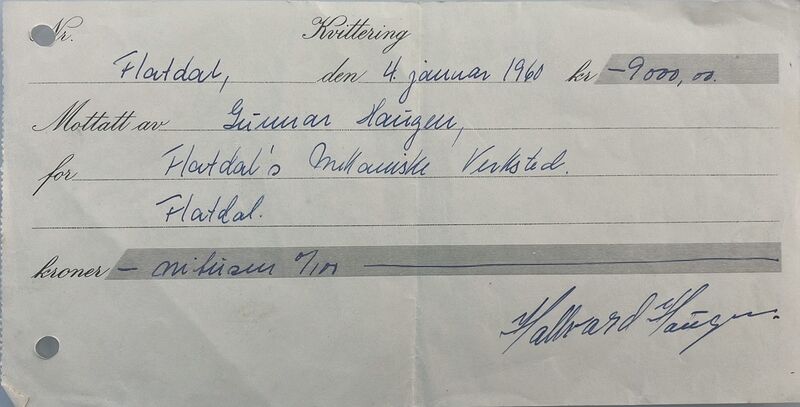 Nr. Kvittering
Flatdal, den 4. januar 1960 kr -9000,00.
Mottatt av Gunnar Haugen,
for Flatdal's Mekaniske Verksted.
Flatdal.
kroner - nitusen 0/100
Hallvard Haugen.